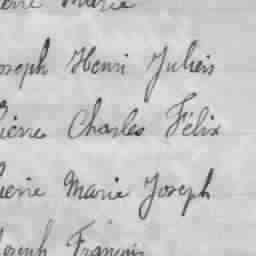 Marie
oseph Henri Julien
ierre Charles Félix
ierre Marie Joseph
oseph François